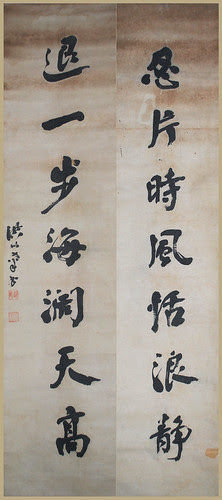 忍片時風恬浪静
退一步海濶天高